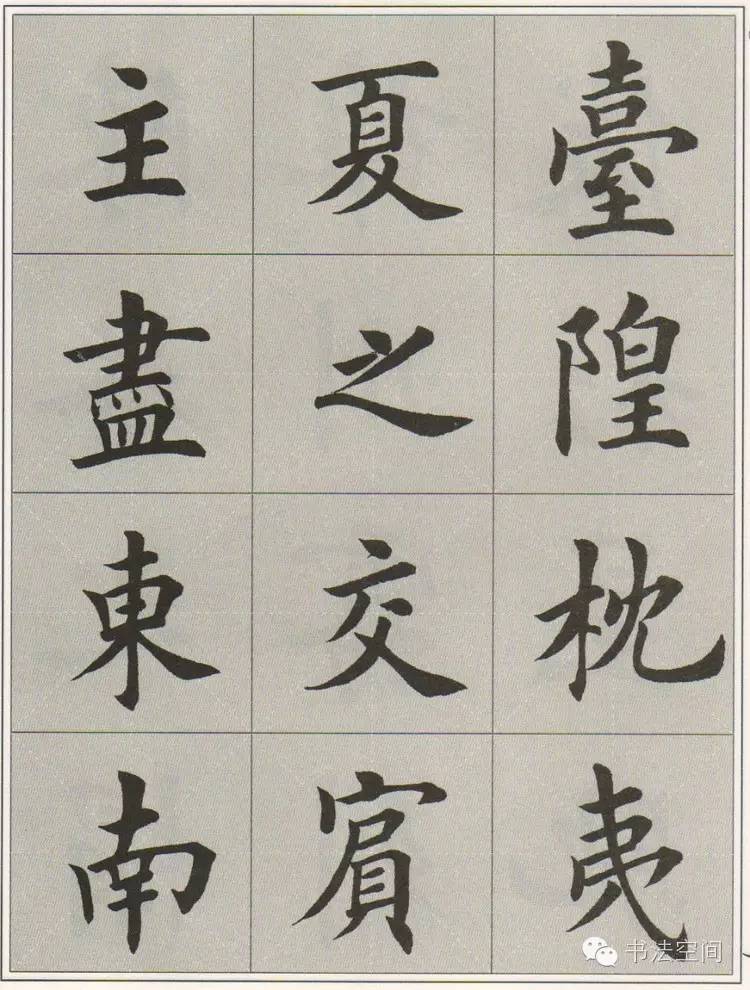 臺隍枕夷
夏之交賓
主盡東南
书法空间